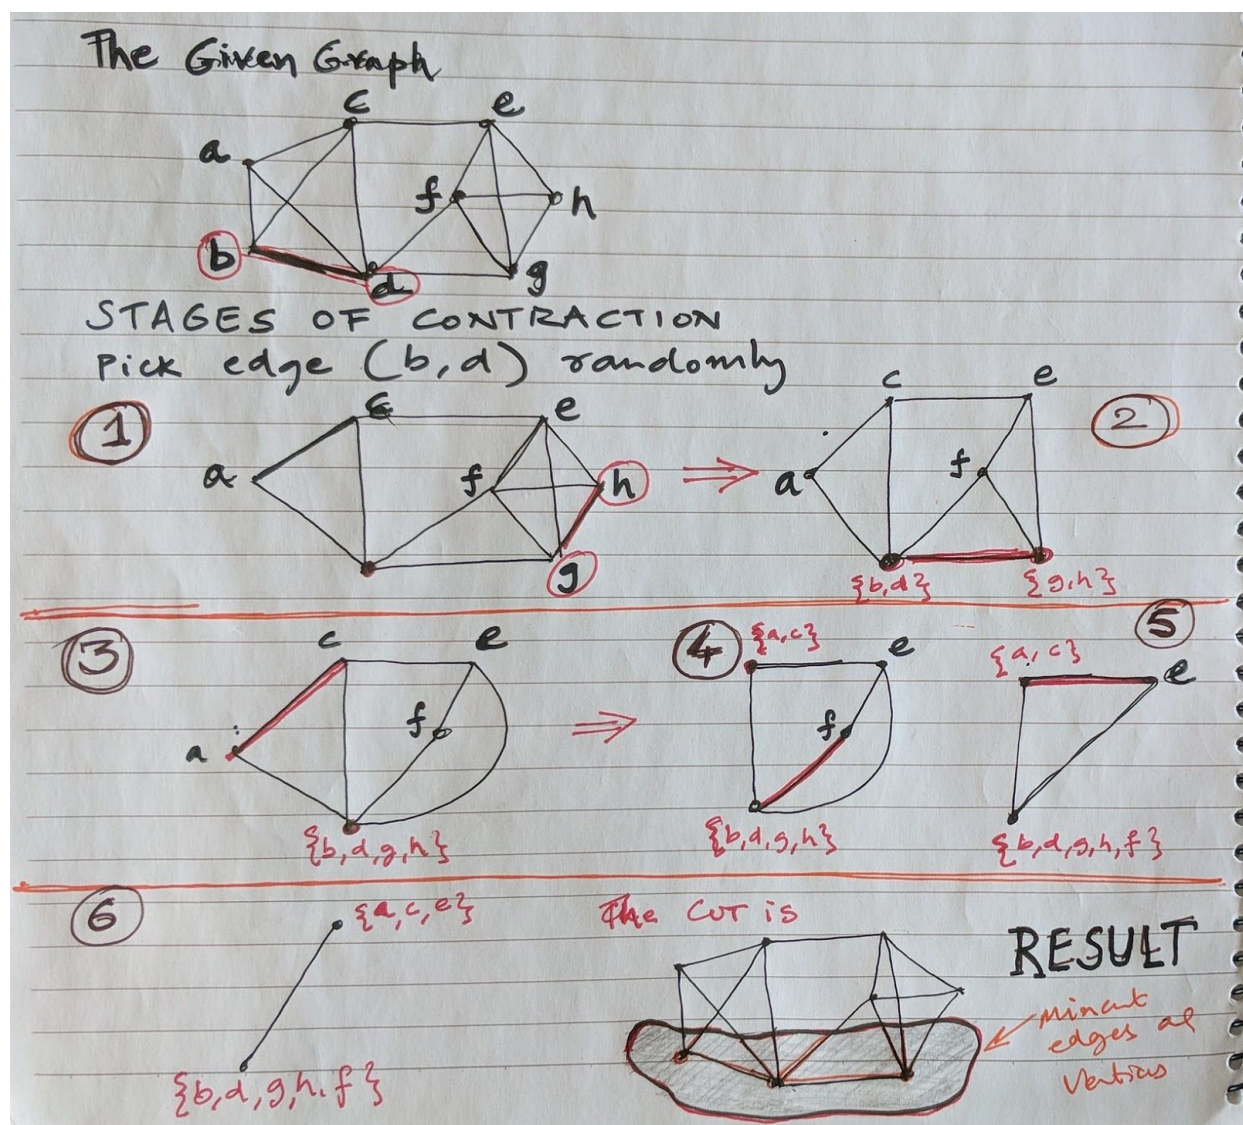 The Given Graph
c e
a
f h
b
d g
STAGES OF CONTRACTION
Pick edge (b,d) randomly
1
c e
a f h
g
2
c e
a f
{b,d} {g,h}
3
c e
f
a
{b,d,g,h}
4
{a,c} e
f
{b,d,g,h}
5
{a,c} e
{b,d,g,h,f}
6
{a,c,e}
{b,d,g,h,f}
The CUT is
RESULT
Mincut
edges